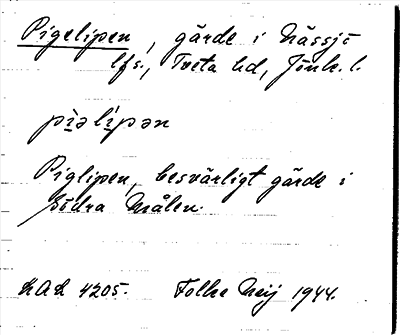 Pigelipen, gärde i Nässjö
lfs., Tveta hd, Jönk. l.
pìəlípən
Piglipen, besvärligt gärde i
Södra Målen.
4205. Folke Meij 1944.